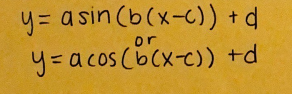 y= a sin (b(x-c)) + d
or
y= a cos (b(x-c)) +d